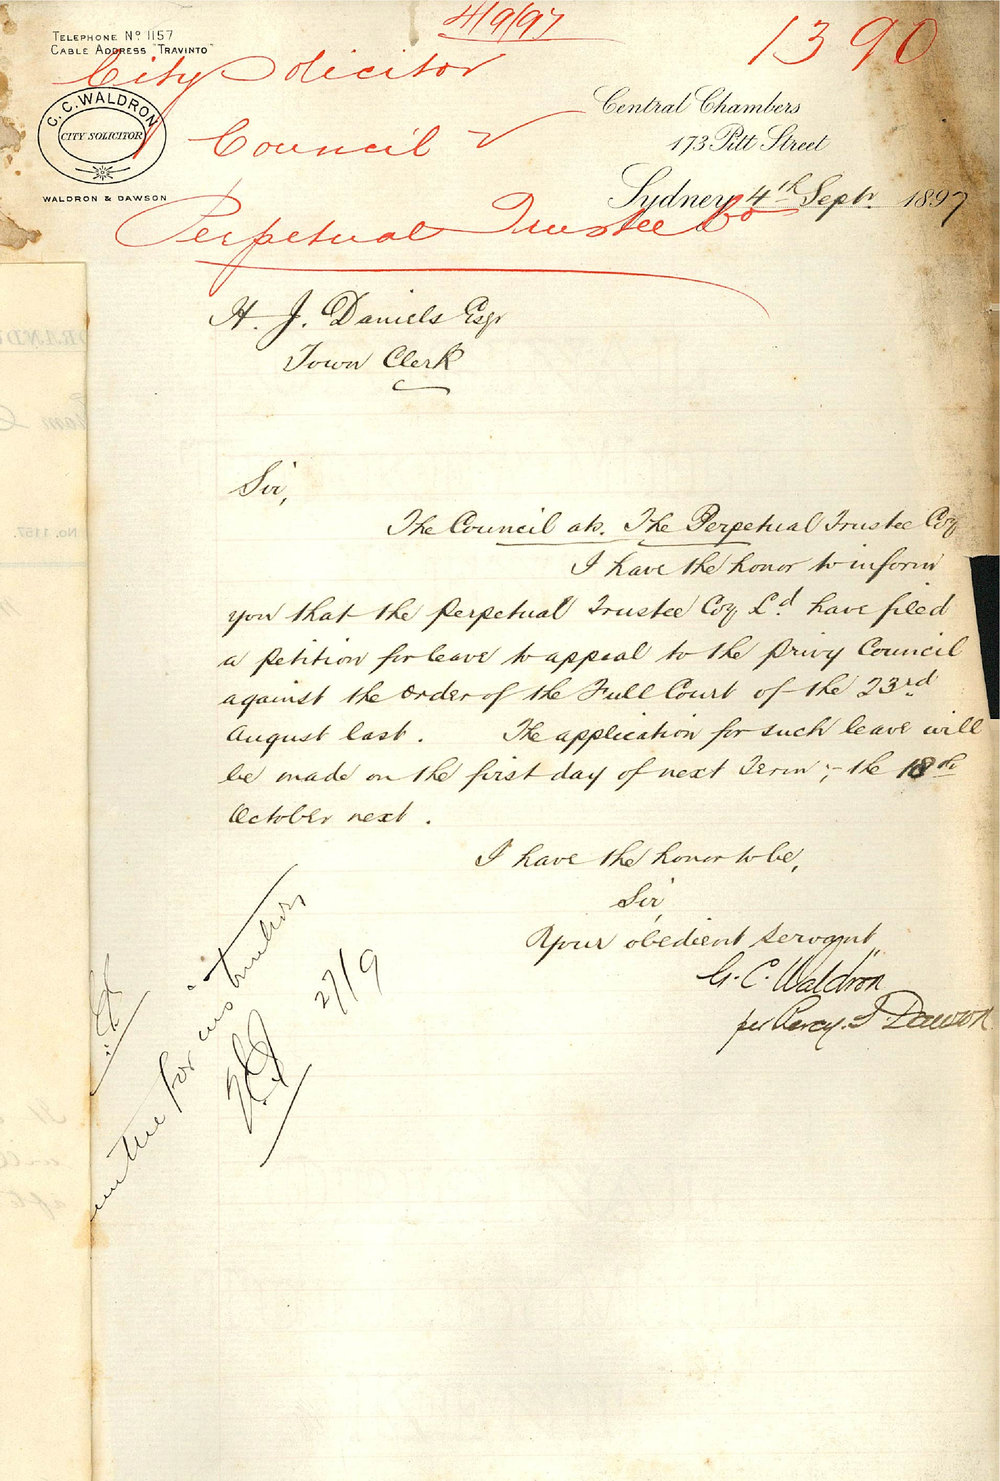 4/9/97
1390
TELEPHONE Nº 1157
CABLE ADDRESS "TRAVINTO"
City Solicitor
G. C. WALDRON
CITY SOLICITOR
WALDRON & DAWSON
Council v
Perpetual Trustee Co
Central Chambers
173 Pitt Street
Sydney 4th Septr. 1897
H. J. Daniels Esqr
Town Clerk
Sir,
The Council ats. The Perpetual Trustee Coy
I have the honor to inform
you that the Perpetual Trustee Coy Ld. have filed
a petition for leave to appeal to the Privy Council
against the Order of the Full Court of the 23rd
August last. The application for such leave will
be made on the first day of next Term :- the 18th
October next.
I have the honor to be,
Sir,
Your obedient servant,
G. C. Waldron
per Percy. S. Dawson
for instructions
27/9
No. 1157.